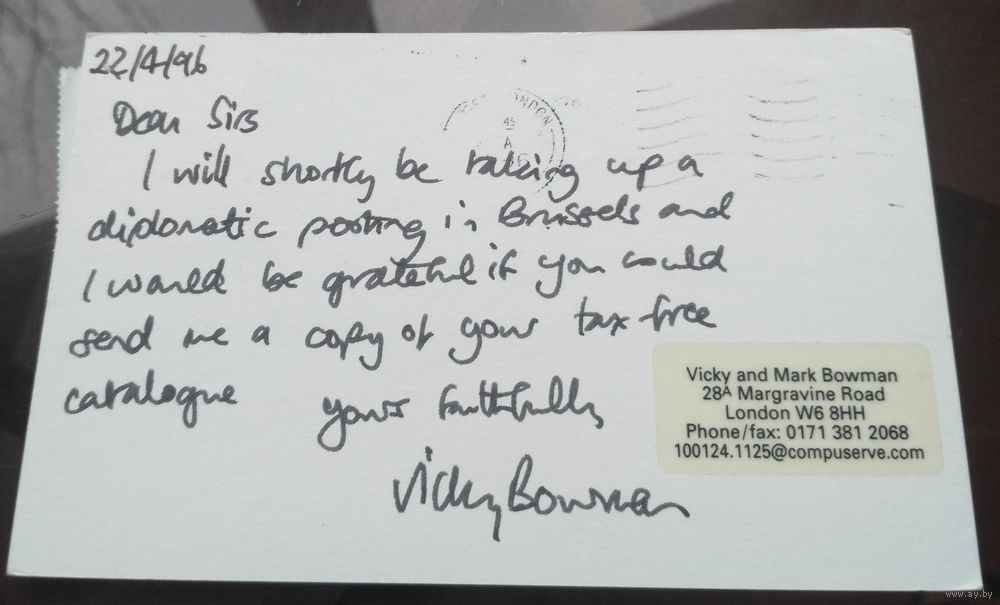 22/4/96
LONDON
45
A
Dear Sirs
I will shortly be taking up a
diplomatic posting in Brussels and
I would be grateful if you could
send me a copy of your tax-free
catalogue
yours faithfully
Vicky Bowman
Vicky and Mark Bowman
28A Margravine Road
London W6 8HH
Phone/fax: 0171 381 2068
100124.1125@compuserve.com
www.ay.by